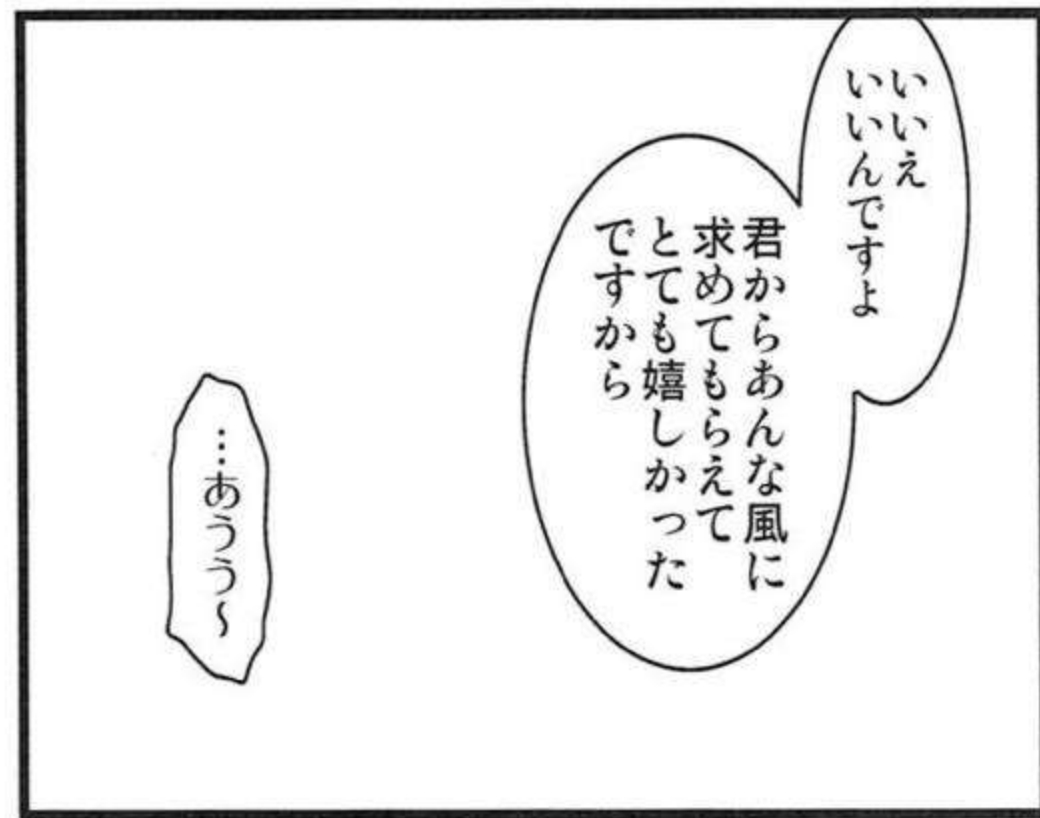 いいえ
いいんですよ
君からあんな風に
求めてもらえて
とても嬉しかった
ですから
…あうう～